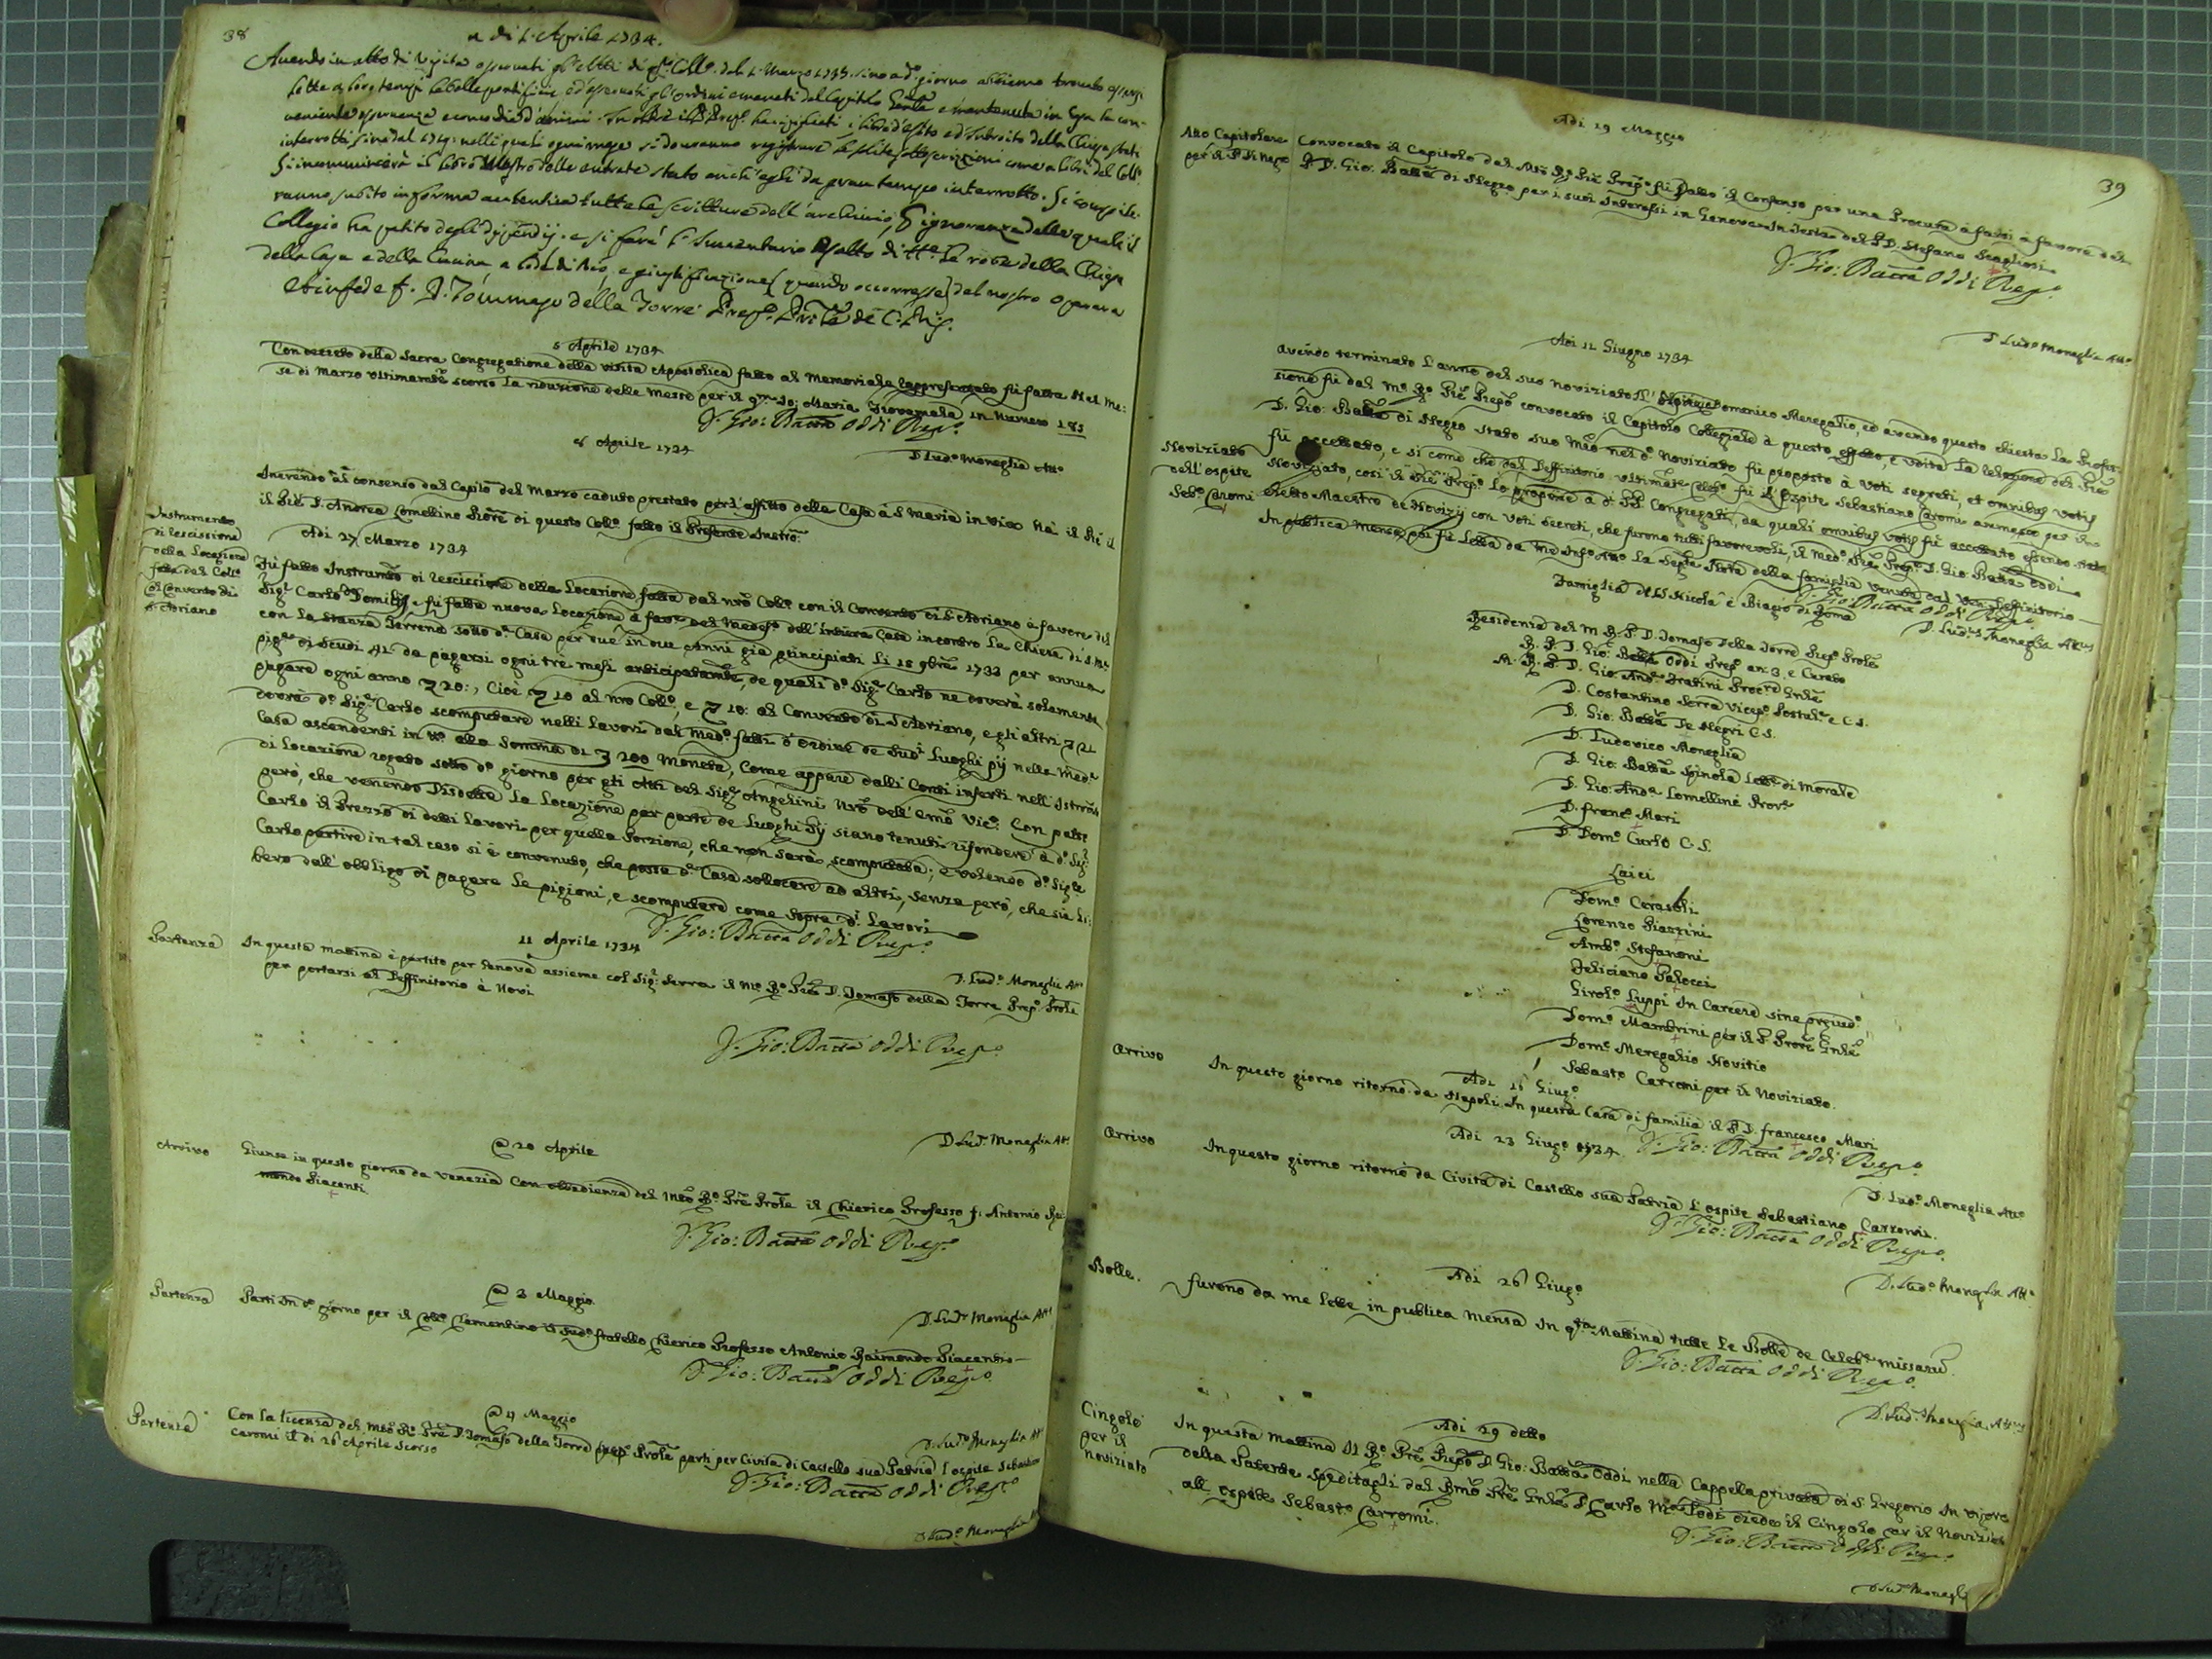 38
a di 1. Aprile 1734.
Avendo in atto di Visita osservati gl'Atti di qto Collo. dal 1. Marzo 1733. sino a do. giorno abbiamo trovato essersi
lette a loro tempi le bolle pontificie ed osservati gl'ordini emanati dal Capitolo Genle e mantenuta in essa la con-
veniente osservanza e concordia d'animi.
interrotti sino dal 1719: nelli quali ogni mese si dovranno registrare le solite sottoscrizioni come a libri del Collo.
Si incomincierà il libro Mastro delle entrate stato anch'egli da gran tempo interrotto. Si compile-
ranno subito in forma autentica tutte le scritture dell'archivio, per ignoranza delle quali il
Collegio ha patito degli dispendij. e si farà l'Inventario esatto di tte. le robe della Chiesa
della Casa e della Cucina, a lode di Dio, e giustificazione (quando occorresse) del nostro operare
et in fede f. D. Tommaso della Torre Prepo. Prãle de C. R. S.
5 Aprile 1734
Con decreto della Sacra Congregatione della visita Apostolica fatto al Memoriale rappresentato fù fatta nel me:
se di Marzo ultimamte scorso la riduzione delle messe per il qm Io: Maria Giovenale in Numero 185
D. Gio: Batta Oddi Prepo.
D Ludo. Moneglia Atto.
8 Aprile 1734
Inerendo al consenso dal Capilo del Marzo caduto prestato per l'affitto della Casa a S Maria in Via hà il dì 27
il Prẽ D. Andrea Lomellino Prore di questo Collo. fatto il Presente Instro.
Adi 27 Marzo 1734
Instrumento
di rescissione
della Locazione
fatta dal Collo.
col Convento di
S. Adriano
Fù fatto Instrumto di rescissione della Locazione fatta dal nro Collo. con il Convento di S. Adriano a favore del
Sigr. Carlo Domity e fu fatta nuova Locazione a favor. del medeso. dell'intiera casa incontro la Chiesa di S. Ma
con la stanza terrena sotto da. Casa per due in due Anni già principiati li 15 9bre 1733 per annua
pigne. di scudi 41 da pagarsi ogni tre mesi anticipatamte, de quali do. Sigr. Carlo ne doverà solamente
pagare ogni anno 20:, cioè 10 al nro Collo., e 10: al Convento di S Adriano, e gli altri 21
doverà do. Sigr. Carlo scomputare nelli lavori dal medo. fatti d'ordine de sudi. Luoghi pij nella meda.
Casa ascendenti in tto. alla somma di 200 moneta, come appare dalli Conti inserti nell'Istrom.
di Locazione rogato sotto do. giorno per gli Atti del Sigr. Angelini Nro. dell'emo Vico: Con patto
però, che venendo disdetta la Locazione per parte de Luoghi Pij siano tenuti rifondere à do. Sigr.
Carlo il Prezzo di detti Lavori per quella Porzione, che non sarà scomputata; e volendo do. Sigre
Carlo partire in tal caso si è convenuto, che possa da. Casa sollocare ad altri, senza però, che sia li:
bero dall'obbligo di pagare le pigioni, e scomputare come sopra di. lavori
D. Gio: Batta Oddi Prepo.
D. Ludo. Moneglia Atto
11 Aprile 1734
Partenza
In questa mattina è partito per Genova assieme col Sigr. Serra il M. Ro. Prẽ D. Tomaso della Torre Prepo. Prole
per portarsi al Deffinitorio à Novi
D. Gio: Batta Oddi Prepo.
D Ludo. Moneglia Atto
@ 20 Aprile
Arrivo
Giunse in questo giorno da Venezia con obbedienza del mto Ro. Prẽ Prole il Chierico Professo f. Antonio Rai:
mondo Piacenti
D. Gio: Batta Oddi Prepo.
D. Ludo Moneglia Atto
@ 3 Maggio
Partenza
Partì in do. giorno per il Collo. Clementino il sudo. fratello Chierico Professo Antonio Raimondo Piacentio
D. Gio: Batta Oddi Prepo.
D. Ludo Moneglia Atto
@ 4 Maggio
Partenza
Con la licenza del mto Ro. Prẽ D. Tomaso della Torre Prepo. Prole partì per Civita di Castello sua Patria l'ospite Sebastiano
Caromi il di 26 Aprile scorso
D. Gio: Batta Oddi Prepo
D Ludo. Moneglia
39
Adi 19 Maggio
Atto Capitolare
per il P. Di Negro
Convocato il Capitolo dal Mto Ro Prẽ Prepo. fù Dato il Consenso per una Procura à farsi à favore del
P. D. Gio: Batta di Negro per i suoi Interessi in Genova in testa del P D. Stefano Scagliosi.
D. Gio: Batta Oddi Prepo.
D Ludo Moneglia Atto.
Adi 11 Giugno 1734
Avendo terminato l'anno del suo noviziato Domenico Meregalio, ed avendo questo chiesta la Profes:
sione fù dal mo. Ro. Prẽ Prepo convocato il Capitolo Collegiale à questo effetto, e udita la relazione del Prẽ
D. Gio: Batta di Negro stato suo Mro nel do. Noviziato fù proposto à voti segreti, et omnibus votis
Noviziato
dell'ospite
Sebo. Caromi
fù accettato, e si come che dal Deffinitorio ultimate Celebo. fù l'ospite Sebastiano Caromi ammesso per il
Noviziato, così il Prẽ Prepo. lo propose à di. PP. Congregati, da quali omnibus votis fù accettato essendo stato
eletto Maestro de Novizij con voti secreti, che furono tutti favorevoli, il medo. Prẽ Prepo. D. Gio Batta Oddi
In publica mensa poi fù Letta da me infro Atto La segte Nota della famiglia venuta dal Ven. Deffinitorio
D. Gio: Batta Oddi Prepo.
D. Ludo. Moneglia Atto
Famiglia de SS Nicola e Biagio di Roma
Residenza del M R. P D. Tomaso Della Torre Prepo Prole
R. P. D. Gio: Batta Oddi Prepo an. 3. e Curato
M. R. P. D. Gio: Anda. Fratini Procre Gnle
D. Costantino Serra Vicepo. Postulre e C. S.
D. Gio: Batta De Negri C. S.
D. Ludovico Moneglia
D. Gio: Batta Spinola Lettre di Morale
D. Gio: Anda Lomellini Prore
D. Franco. Mari
D. Domo. Curlo C. S.
Laici
Domo. Cerasoli
Lorenzo Piazzini
Ambo. Stefanoni
Feliciano Palocci
Girolo. Luppi In Carcere sine preiudo.
Domo. Mambrini per il P. Prore Gnle
Domo. Meregalio Novitio
Sebasto Carromi per il Noviziato.
Adi 16 Giugo.
Arrivo
In questo giorno ritornò da Napoli in questa casa di familia il P D. Francesco Mari
D. Gio: Batta Oddi Prepo.
D. Ludo. Moneglia Atto
Adi 23 Giugo 1734
Arrivo
In questo giorno ritornò da Civita di Castello sua Patria l'ospite Sebastiano Carromi.
D. Gio: Batta Oddi Prepo.
D. Ludo. Moneglia Atto.
Adi 26 Giugo
Bolle.
Furono da me lette in publica mensa in qta. Mattina tutte le Bolle de Celebe. missarũ
D. Gio: Batta Oddi Prepo.
D. Ludo. Moneglia, Atto
Adi 29 detto
Cingolo
per il
noviziato
In questa mattina Il Ro. Prẽ Prepo D Gio: Batta Oddi nella Cappella privata di S. Gregorio in vigore
della Patente speditagli dal Rmo Prẽ Gnle D Carlo Ma. Lodi diede il Cingolo per il Noviziato
all'ospite Sebasto. Carromi.
D. Gio: Batta Oddi Prepo.
D Ludo. Moneglia